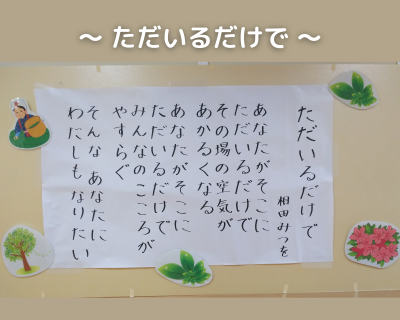 〜 ただいるだけで 〜
ただいるだけで
相田みつを
あなたがそこに
ただいるだけで
その場の空気が
あかるくなる
あなたがそこに
ただいるだけで
みんなのこころが
やすらぐ
そんな あなたに
わたしもなりたい